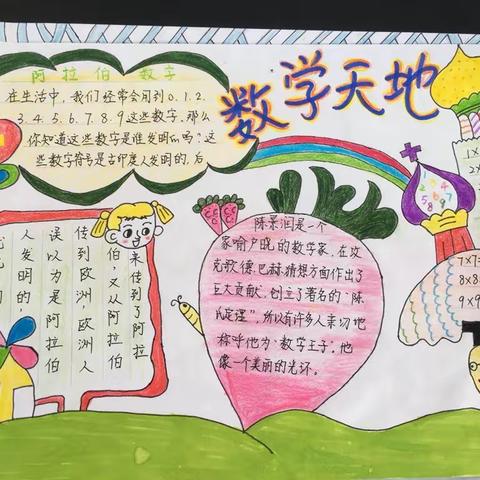 数学天地
阿拉伯数字
在生活中,我们经常会用到0.1.2.
3.4.5.6.7.8.9这些数字,那么
你知道这些数字是谁发明的吗?这
些数字符号是古印度人发明的,后
来传到了阿拉
伯,又从阿拉伯
传到欧洲,欧洲人
误以为是阿拉伯
人发明的,
陈景润是一个
家喻户晓的数学家,在攻
克歌德.巴赫猜想方面作出了
巨大贡献,创立了著名的“陈
氏定理”,所以有许多人亲切地
称呼他为“数学王子”.他
像一个美丽的光环。
1×
2×
7×7=
8×8
9×9